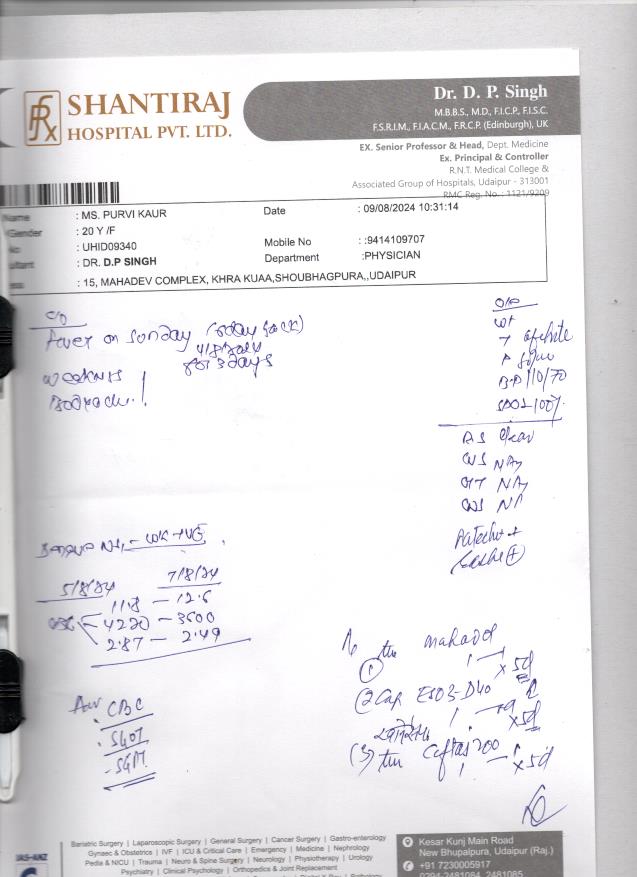 SHANTIRAJ
HOSPITAL PVT. LTD.
Dr. D. P. Singh
M.B.B.S., M.D., F.I.C.P., F.I.S.C.
F.S.R.I.M., F.I.A.C.M., F.R.C.P. (Edinburgh), UK
EX. Senior Professor & Head, Dept. Medicine
Ex. Principal & Controller
R.N.T. Medical College &
Associated Group of Hospitals, Udaipur - 313001
RMC Reg. No. : 1121/9209
Name : MS. PURVI KAUR Date : 09/08/2024 10:31:14
/Gender : 20 Y /F
No : UHID09340 Mobile No : :9414109707
ultant : DR. D.P SINGH Department :PHYSICIAN
ess : 15, MAHADEV COMPLEX, KHRA KUAA,SHOUBHAGPURA,,UDAIPUR
C/O
fever on Sunday
for 3 days
weakness
O/E
wt
T afebrile
P
B.P 110/70
SPO2 100%
RS clear
CVS NAD
GIT NAD
CNS
Dengue NS1 - +VE
5/8/24 7/8/24
11.8 - 12.6
4220 - 3600
2.87 - 2.49
Adv
CBC
SGOT
SGPT
1
x 5d
(2) Cap ESO3-D40
x 5d
(3) 200
x 5d
Bariatric Surgery | Laparoscopic Surgery | General Surgery | Cancer Surgery | Gastro-enterology
Gynaec & Obstetrics | IVF | ICU & Critical Care | Emergency | Medicine | Nephrology
Pedia & NICU | Trauma | Neuro & Spine Surgery | Neurology | Physiotherapy | Urology
Psychiatry | Clinical Psychology | Orthopedics & Joint Replacement
Kesar Kunj Main Road
New Bhupalpura, Udaipur (Raj.)
+91 7230005917
0294-2481084, 2481085